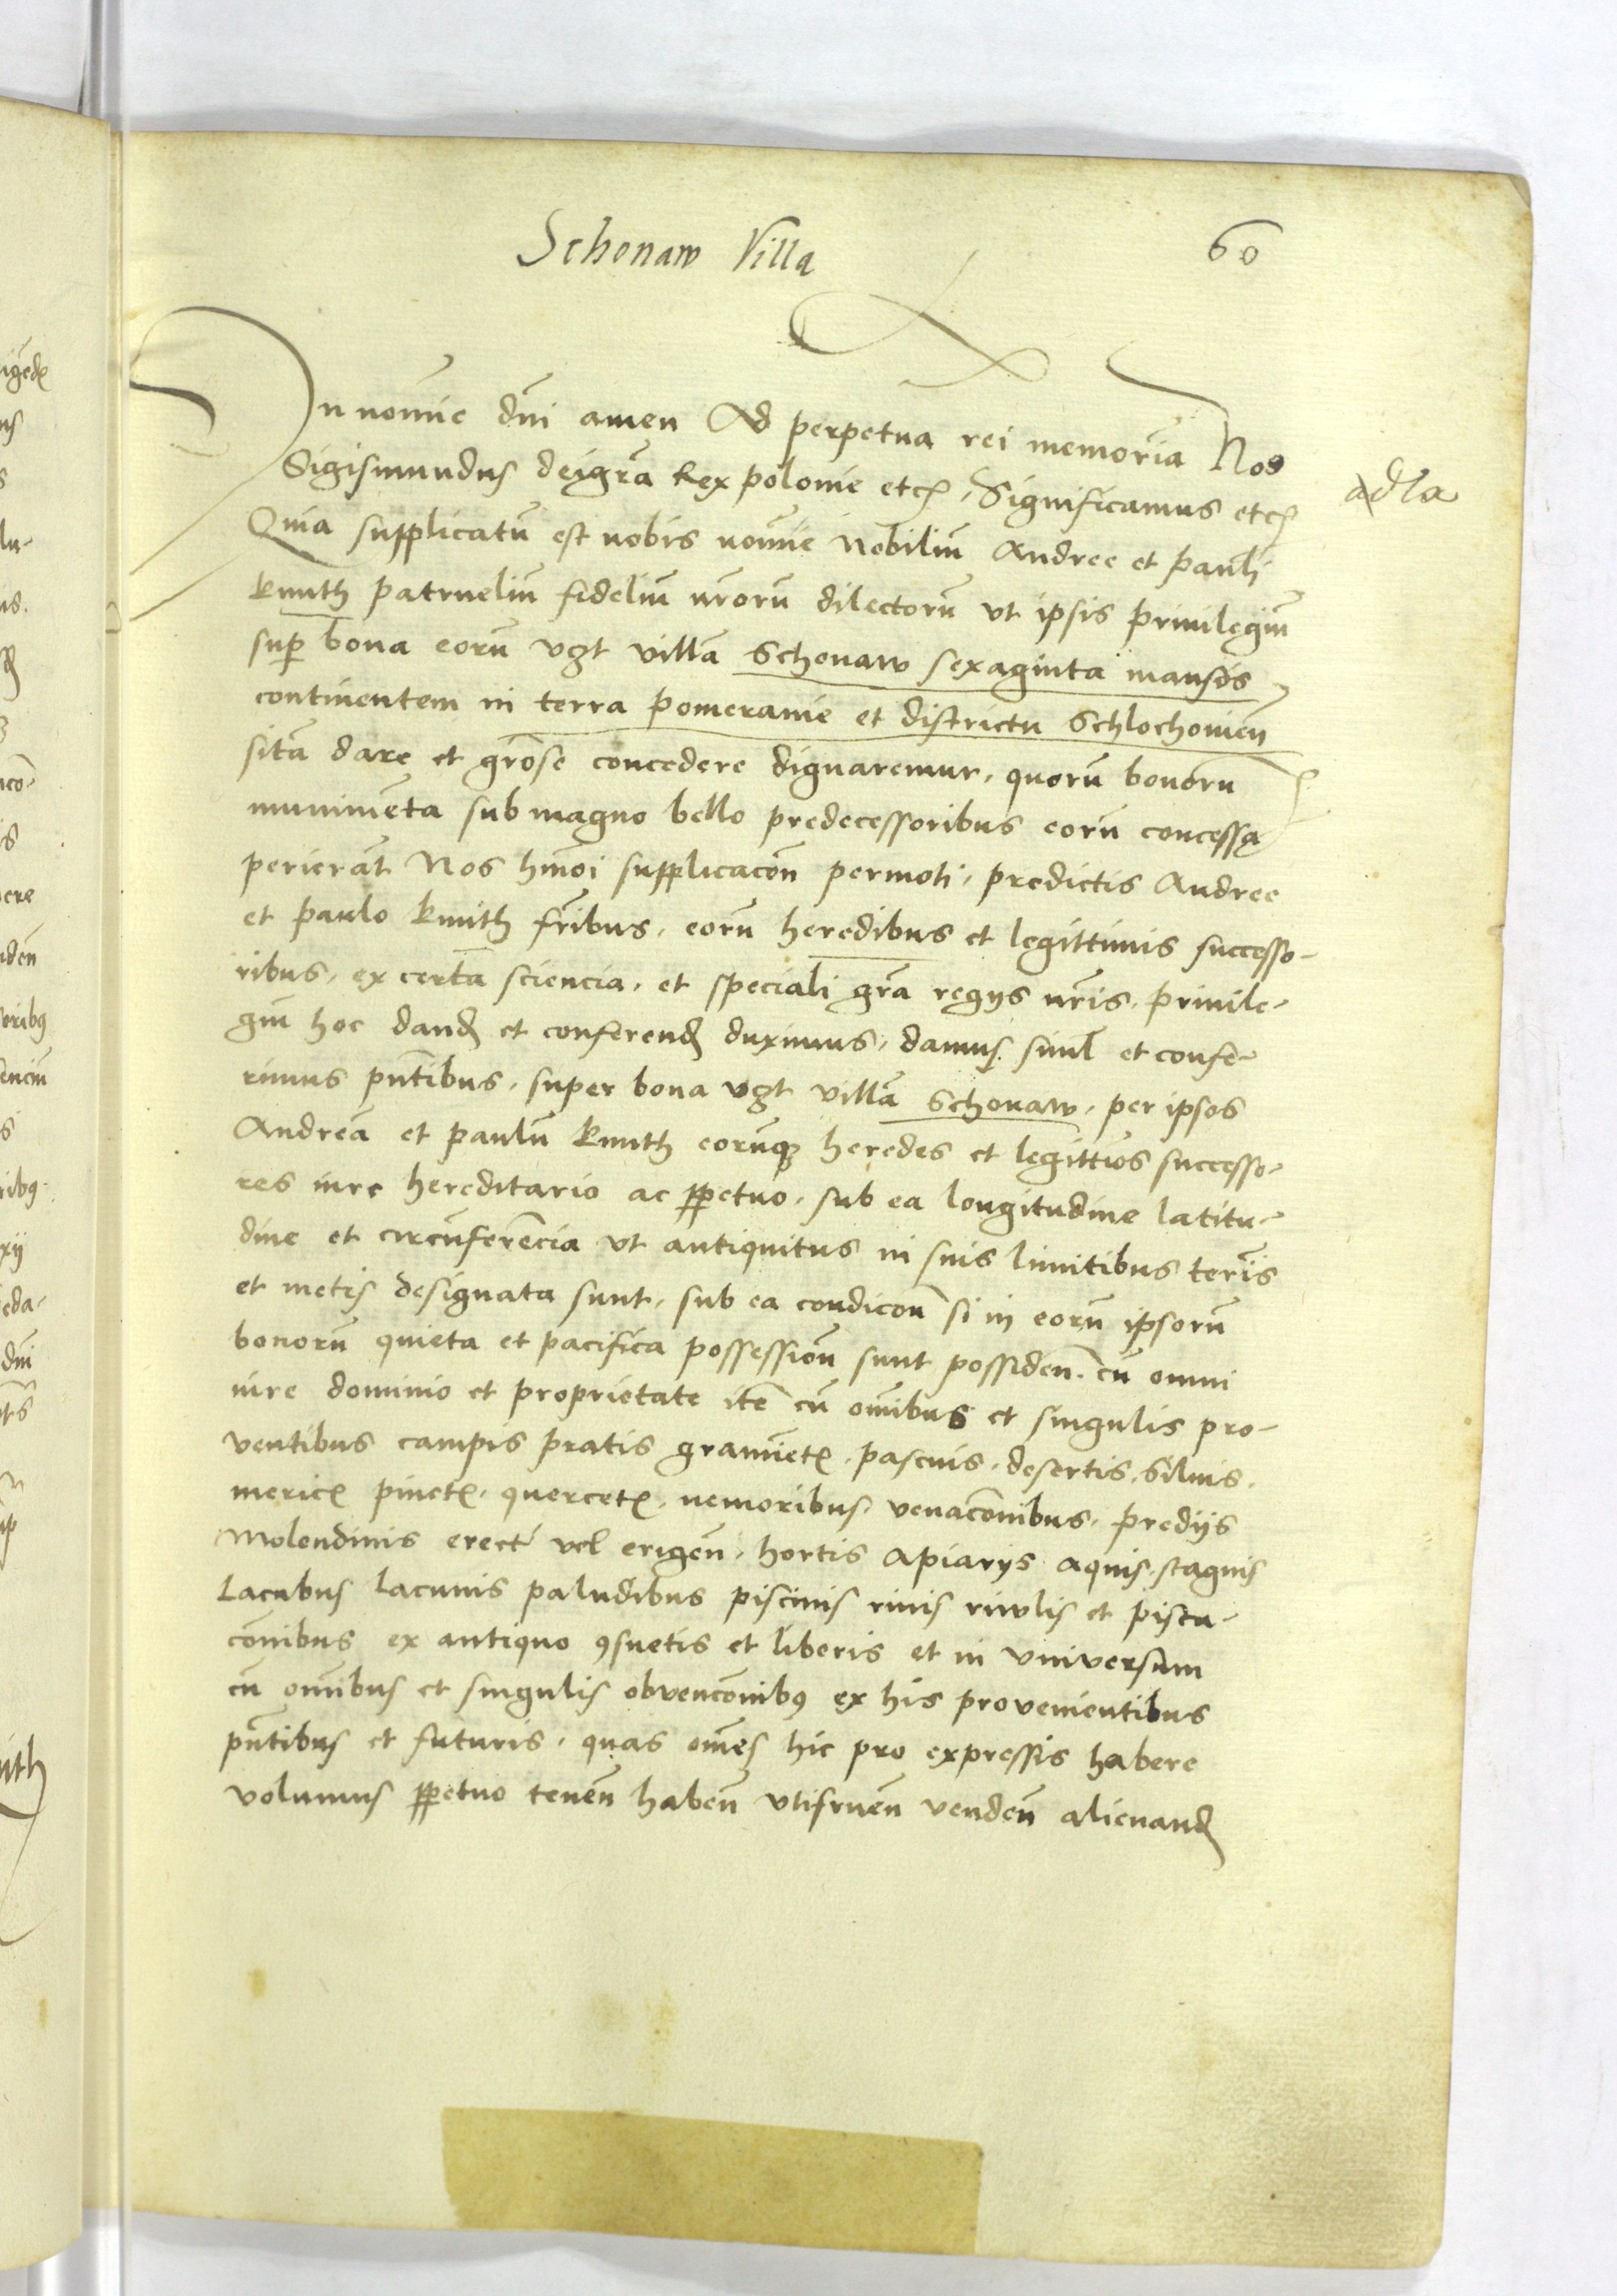 Schonaw Villa
60
In nomīe dn̄i amen Ad perpetua rei memoriā Nos
adla
Sigismundus deigrā Rex polonie etc̄, Significamus etc̄
Quia supplicatū est nobis nomīe Nobiliū Andree et pauli
knuth patrueliū fideliū nr̄orū dilectorū vt ipsis priuilegiū
sup̄ bona eorū vꝫt villā Schonaw sexaginta mansos
continentem in terra pomeranie et districtu Schlochouien̄
sitā dare et grōse concedere dignaremur, quorū bonorū
munimēta sub magno bello predecessoribus eorū concessa
perierāt Nos hmōi supplicacōn permoti, predictis Andree
et paulo knuth fr̄ibus, eorū heredibus et legittimis successo-
ribus, ex certa sciencia, et speciali grā regijs nr̄is, priuile-
giū hoc dand̄ et conferend̄ duximus, damus simul et confe-
rimus pn̄tibus, super bona vꝫt villā Schonaw, per ipsos
Andreā et paulū knuth eorūqꝫ heredes et legittīos successo-
res iure hereditario ac ꝑpetuo, sub ea longitudine latitu-
dine et circūferēcia vt antiquitus in suis limitibus terīs
et metis designata sunt, sub ea condicōn si in eorū ipsorū
bonorū quieta et pacifica possessiōn sunt possiden̄. cū omni
iure dominio et proprietate itē cū om̄ibus et singulis pro-
ventibus campis pratis gramīetꝭ, pascuis, desertis, siluis,
mericꝭ pinetꝭ, quercetꝭ, nemoribus, venacōnibus, predijs
Molendinis erect̄ vel erigen̄, hortis Apiarijs aquis, stagnis
Lacubus lacunis paludibus piscinis riuis riwlis et pisca-
cōnibus ex antiquo ꝯsuetis et liberis et in vniversum
cū om̄ibus et singulis obvencōnibꝰ ex his provenientibus
pn̄tibus et futuris, quas om̄es hic pro expressis habere
volumus ꝑpetuo tenen̄ haben̄ vtifruen̄ venden̄ alienand̄